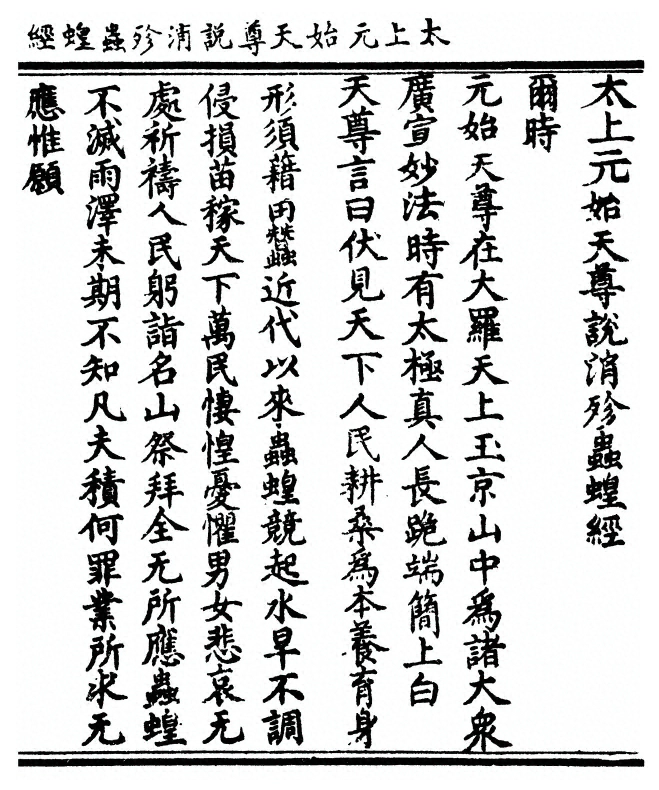 太上元始天尊說消殄蟲蝗經
太上元始天尊說消殄蟲蝗經
爾時
元始天尊在大羅天上玉京山中為諸大眾
廣宣妙法時有太極真人長跪端簡上白
天尊言曰伏見天下人民耕桑為本養育身
形須藉田蠶近代以來蟲蝗競起水旱不調
侵損苗稼天下萬民悽惶憂懼男女悲哀无
處祈禱人民躬詣名山祭拜全无所應蟲蝗
不滅雨澤未期不知凡夫積何罪業所求无
應惟願